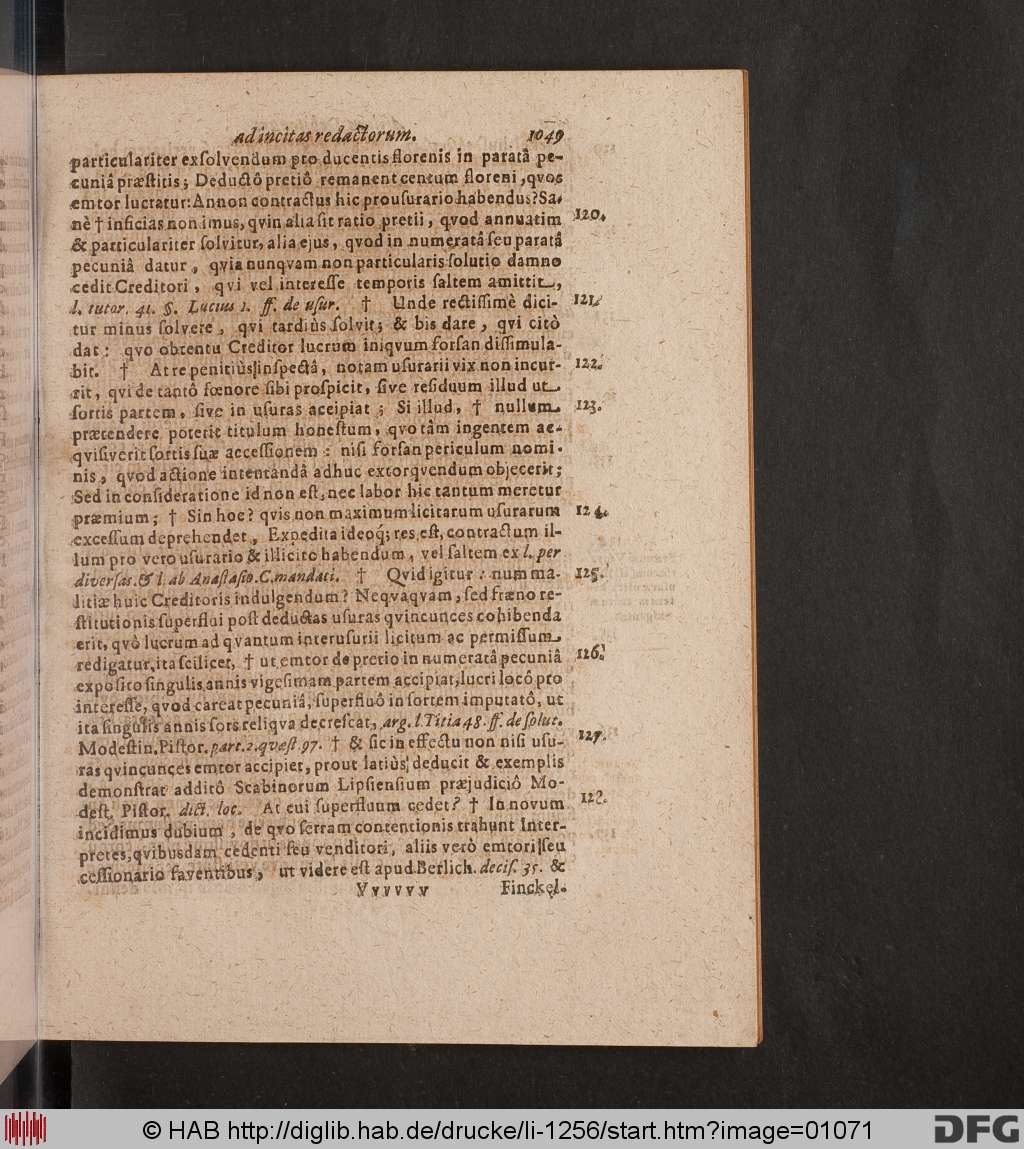 ad incitas redactorum. 1049
particulariter exſolvendum pro ducentis florenis in paratâ pe-
cuniâ præſtitis; Deductô pretiô remanent centum floreni, qvos
emtor lucratur: Annon contractus hic pro uſurario habendus? Sa-
nè † inficias non imus, qvin alia ſit ratio pretii, qvod annuatim 120.
& particulariter ſolvitur, alia ejus, qvod in numeratâ ſeu paratâ
pecuniâ datur, qvia nunqvam non particularis ſolutio damno
cedit Creditori, qvi vel intereſſe temporis ſaltem amittit,
l. tutor. 41. §. Lucius 1. ff. de uſur. † Unde rectiſſimè dici- 121.
tur minus ſolvere, qvi tardiùs ſolvit; & bis dare, qvi citò
dat: qvo obtentu Creditor lucrum iniqvum forſan diſſimula-
bit. † At re penitiùs inſpectâ, notam uſurarii vix non incur- 122.
rit, qvi de tantô fœnore ſibi proſpicit, ſive reſiduum illud ut
ſortis partem, ſive in uſuras accipiat; Si illud, † nullum 123.
prætendere poterit titulum honeſtum, qvo tàm ingentem ac-
qviſiverit ſortis ſuæ acceſſionem: niſi forſan periculum nomi-
nis, qvod actione intentandâ adhuc extorqvendum objecerit;
Sed in conſideratione id non eſt, nec labor hic tantum meretur
præmium; † Sin hoc? qvis non maximum licitarum uſurarum 124.
exceſſum deprehendet, Expedita ideoq́; res eſt, contractum il-
lum pro vero uſurario & illicito habendum, vel ſaltem ex l. per
diverſas. & l. ab Anaſtaſio. C. mandati. † Qvid igitur: num ma- 125.
litiæ huic Creditoris indulgendum? Neqvaqvam, ſed fræno re-
ſtitutionis ſuperflui poſt deductas uſuras qvincunces cohibenda
erit, qvò lucrum ad qvantum interuſurii licitum ac permiſſum
redigatur, ita ſcilicet, † ut emtor de pretio in numeratâ pecuniâ 126.
expoſito ſingulis annis vigeſimam partem accipiat, lucri locô pro
intereſſe, qvod careat pecuniâ, ſuperfluô in ſortem imputatô, ut
ita ſingulis annis ſors reliqva decreſcat, arg. l. Titia 48. ff. de ſolut.
Modeſtin. Piſtor. part. 2. qvæſt. 97. † & ſic in effectu non niſi uſu- 127.
ras qvincunces emtor accipiet, prout latiùs deducit & exemplis
demonſtrat additô Scabinorum Lipſienſium præjudiciô Mo-
deſt. Piſtor. dict. loc. At cui ſuperfluum cedet? † In novum 128.
incidimus dubium, de qvo ſerram contentionis trahunt Inter-
pretes, qvibusdam cedenti ſeu venditori, aliis verò emtori ſeu
ceſſionario faventibus, ut videre eſt apud Berlich. deciſ. 35. &
Vvvvvv Finckel.
© HAB http://diglib.hab.de/drucke/li-1256/start.htm?image=01071
DFG